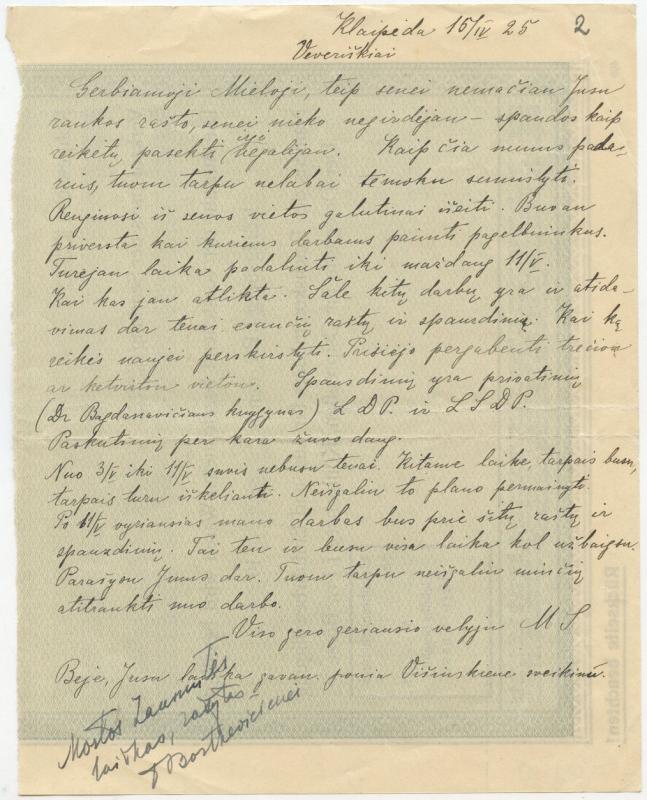 Klaipėda 15/IV 25 2
Veveriškiai
Gerbiamoji Mieloji, teip senei nemačiau Jusu
rankos rašto, senei nieko negirdėjau – spaudos kaip
reikėtų, pasekti irgi negalėjau. Kaip čia mums pada-
rius, tuom tarpu nelabai temoku sumislyti.
Renginosi iš senos vietos galutinai išeiti. Buvau
priversta kai kuriems darbams paimti pagelbininkus.
Turėjau laika padalinti iki maždaug 11/V.
Kai kas jau atlikta. Šale kitų darbų yra ir atida-
vimas dar tenai esančių raštų ir spauzdinių. Kai ką
reikės naujei perskirstyti. Prisiėjo pergabenti trečion
ar ketvirton vieton. Spausdinių yra privatinių
(Dr Bagdanavičiaus knygynas) L D P. ir L S D P.
Paskutinių per kara žuvo daug.
Nuo 3/V iki 11/V suvis nebusu tenai. Kitame laike, tarpais busu,
tarpais turu iškelianti. Neišgaliu to plano permainyti.
Po 11/V vyriausias mano darbas bus prie šitų raštų ir
spauzdinių. Tai ten ir busu visa laika kol užbaigsu.
Parašysu Jums dar. Tuom tarpu neišgaliu minčių
atitraukti nuo darbo.
Viso gero geriausio velyju M S
Beje, Jusu laiška gavau. ponia Višinskene sveikinu.
Mortos Zauniutės
laiškas, rašytas
F Bortkevičienei